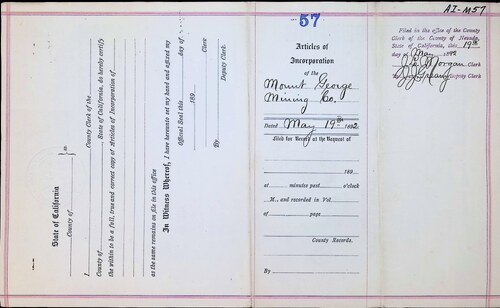 AI-M57
State of California
County of
ss.
I County Clerk of the
County of , State of California, do hereby certify
the within to be a full, true and correct copy of Articles of Incorporation of
as the same remains on file in this office
In Witness Whereof, I have hereunto set my hand and affixed my
Official Seal this day of
189
Clerk
By
Deputy Clerk.
57
Articles of
Incorporation
of the
Mount George
Mining Co.
Dated May 19th 1892
Filed for Record at the Request of
189
at minutes past o'clock
M., and recorded in Vol
of page
County Records.
By
Filed in the office of the County
Clerk of the County of Nevada,
State of California, this 19th
day of May 1892
Morgan Clerk
Deputy Clerk